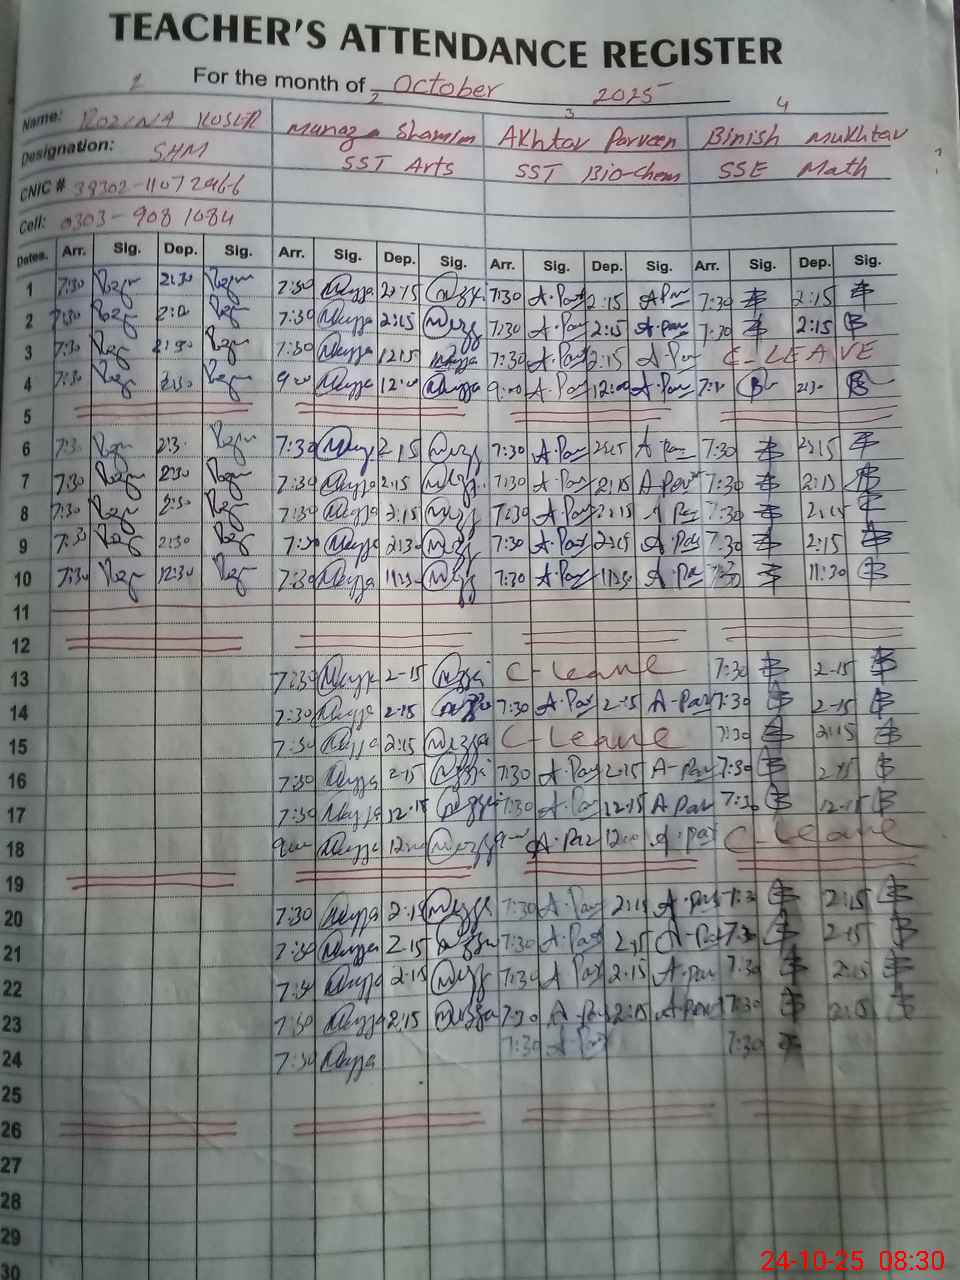 TEACHER'S ATTENDANCE REGISTER
For the month of October 2025
2 2 3 4
Name: ROZINA KOSER Munaza Shamim Akhtar Parveen Binish Mukhtar
Designation: SHM SST Arts SST Bio-Chem SSE Math
CNIC # 38302-1107296-6
Cell: 0303-9081084
Dates. Arr. Sig. Dep. Sig. Arr. Sig. Dep. Sig. Arr. Sig. Dep. Sig. Arr. Sig. Dep. Sig.
1 7:30 2:30 7:30 2:15 7:30 A.Par 2:15 A Par 7:30 2:15
2 7:30 7:30 2:15 7:30 A.Par 2:15 A.Par 7:30 2:15
3 7:30 2:30 7:30 12:15 7:30 A.Par 2:15 A Par C-LEAVE
4 7:30 2:30 9:00 12:00 9:00 A.Par 12:00 A.Par 2:30
5
6 7:30 2:30 7:30 2:15 7:30 A.Par 2:15 A Par 7:30 2:15
7 7:30 2:30 7:30 2:15 7:30 A.Par 2:15 A Par 7:30 2:15
8 7:30 2:30 7:30 2:15 7:30 A.Par 2:15 A Par 7:30 2:15
9 7:30 2:30 7:30 2:30 7:30 A.Par 2:15 A.Par 7:30 2:15
10 7:30 12:30 7:30 11:30 7:30 A.Par 11:30 A.Par 7:30 11:30
11
12
13 7:30 2-15 C-Leave 7:30 2-15
14 7:30 2-15 7:30 A.Par 2-15 A-Par 7:30 2-15
15 7:30 2:15 C-Leave 7:30 2:15
16 7:30 2-15 7:30 A.Par 2-15 A-Par 7:30 2-15
17 7:30 12-15 7:30 A.Par 12-15 A Par 7:30 12-15
18 9:00 12:00 9:00 A.Par 12:00 A.Par C-Leave
19
20 7:30 2:15 7:30 A.Par 2:15 A.Par 7:30 2:15
21 7:30 2-15 7:30 A.Par 2-15 A-Par 7:30 2-15
22 7:30 2:15 7:30 A Par 2-15 A.Par 7:30 2:15
23 7:30 2:15 7:30 A Par 2:15 A Par 7:30 2:15
24 7:30 7:30 A.Par 7:30
25
26
27
28
29
30
24-10-25 08:30